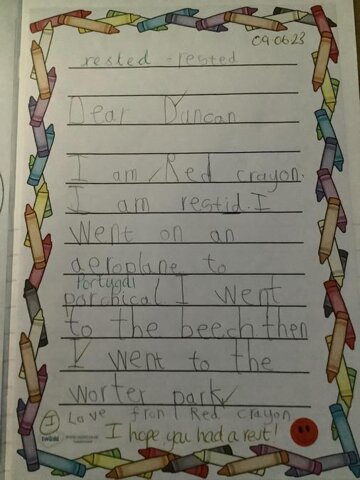 09.06.23
rested - rested
Dear Duncan
I am Red crayon.
I am restid. I
went on an
aeroplane to
Portugal
porchical I went
to the beech then
I went to the
worter park
Love from Red crayon
I
I hope you had a rest!
twinkl